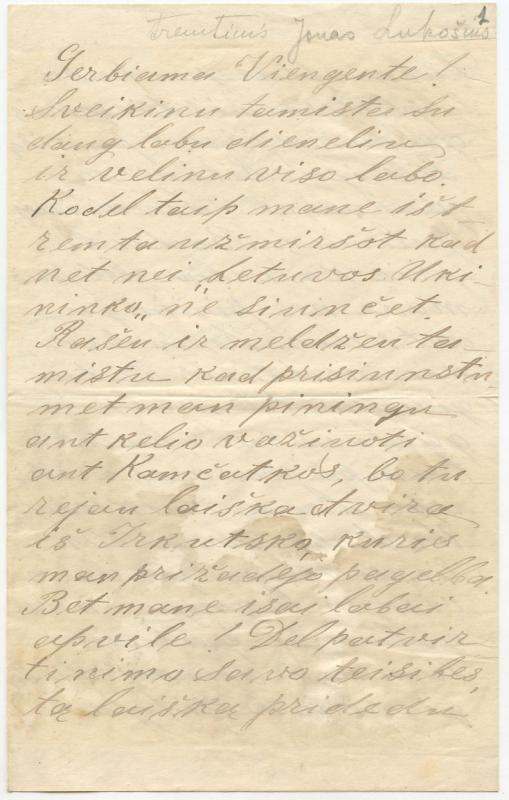 tremtinis Jonas Lukošius 1
Gerbiama Viengente!
Sveikinu tamista su
daug labu dieneliu
ir velinu viso labo.
Kodel taip mane išt-
remta užmiršot kad
net nei "Letuvos Uki-
ninko" ne siunčet.
Rašeu ir meldžeu ta-
mistu kad prisiunstu-
met man piningu
ant kelio važiuoti
ant Kamčatkos, bo tu-
rejau laiška atvira
iš Irkutsko, kuries
man prižadejo pagelba.
Bet mane isai labai
apvile! Del patvir-
tinimo savo teisibes,
tą laišką pridedu